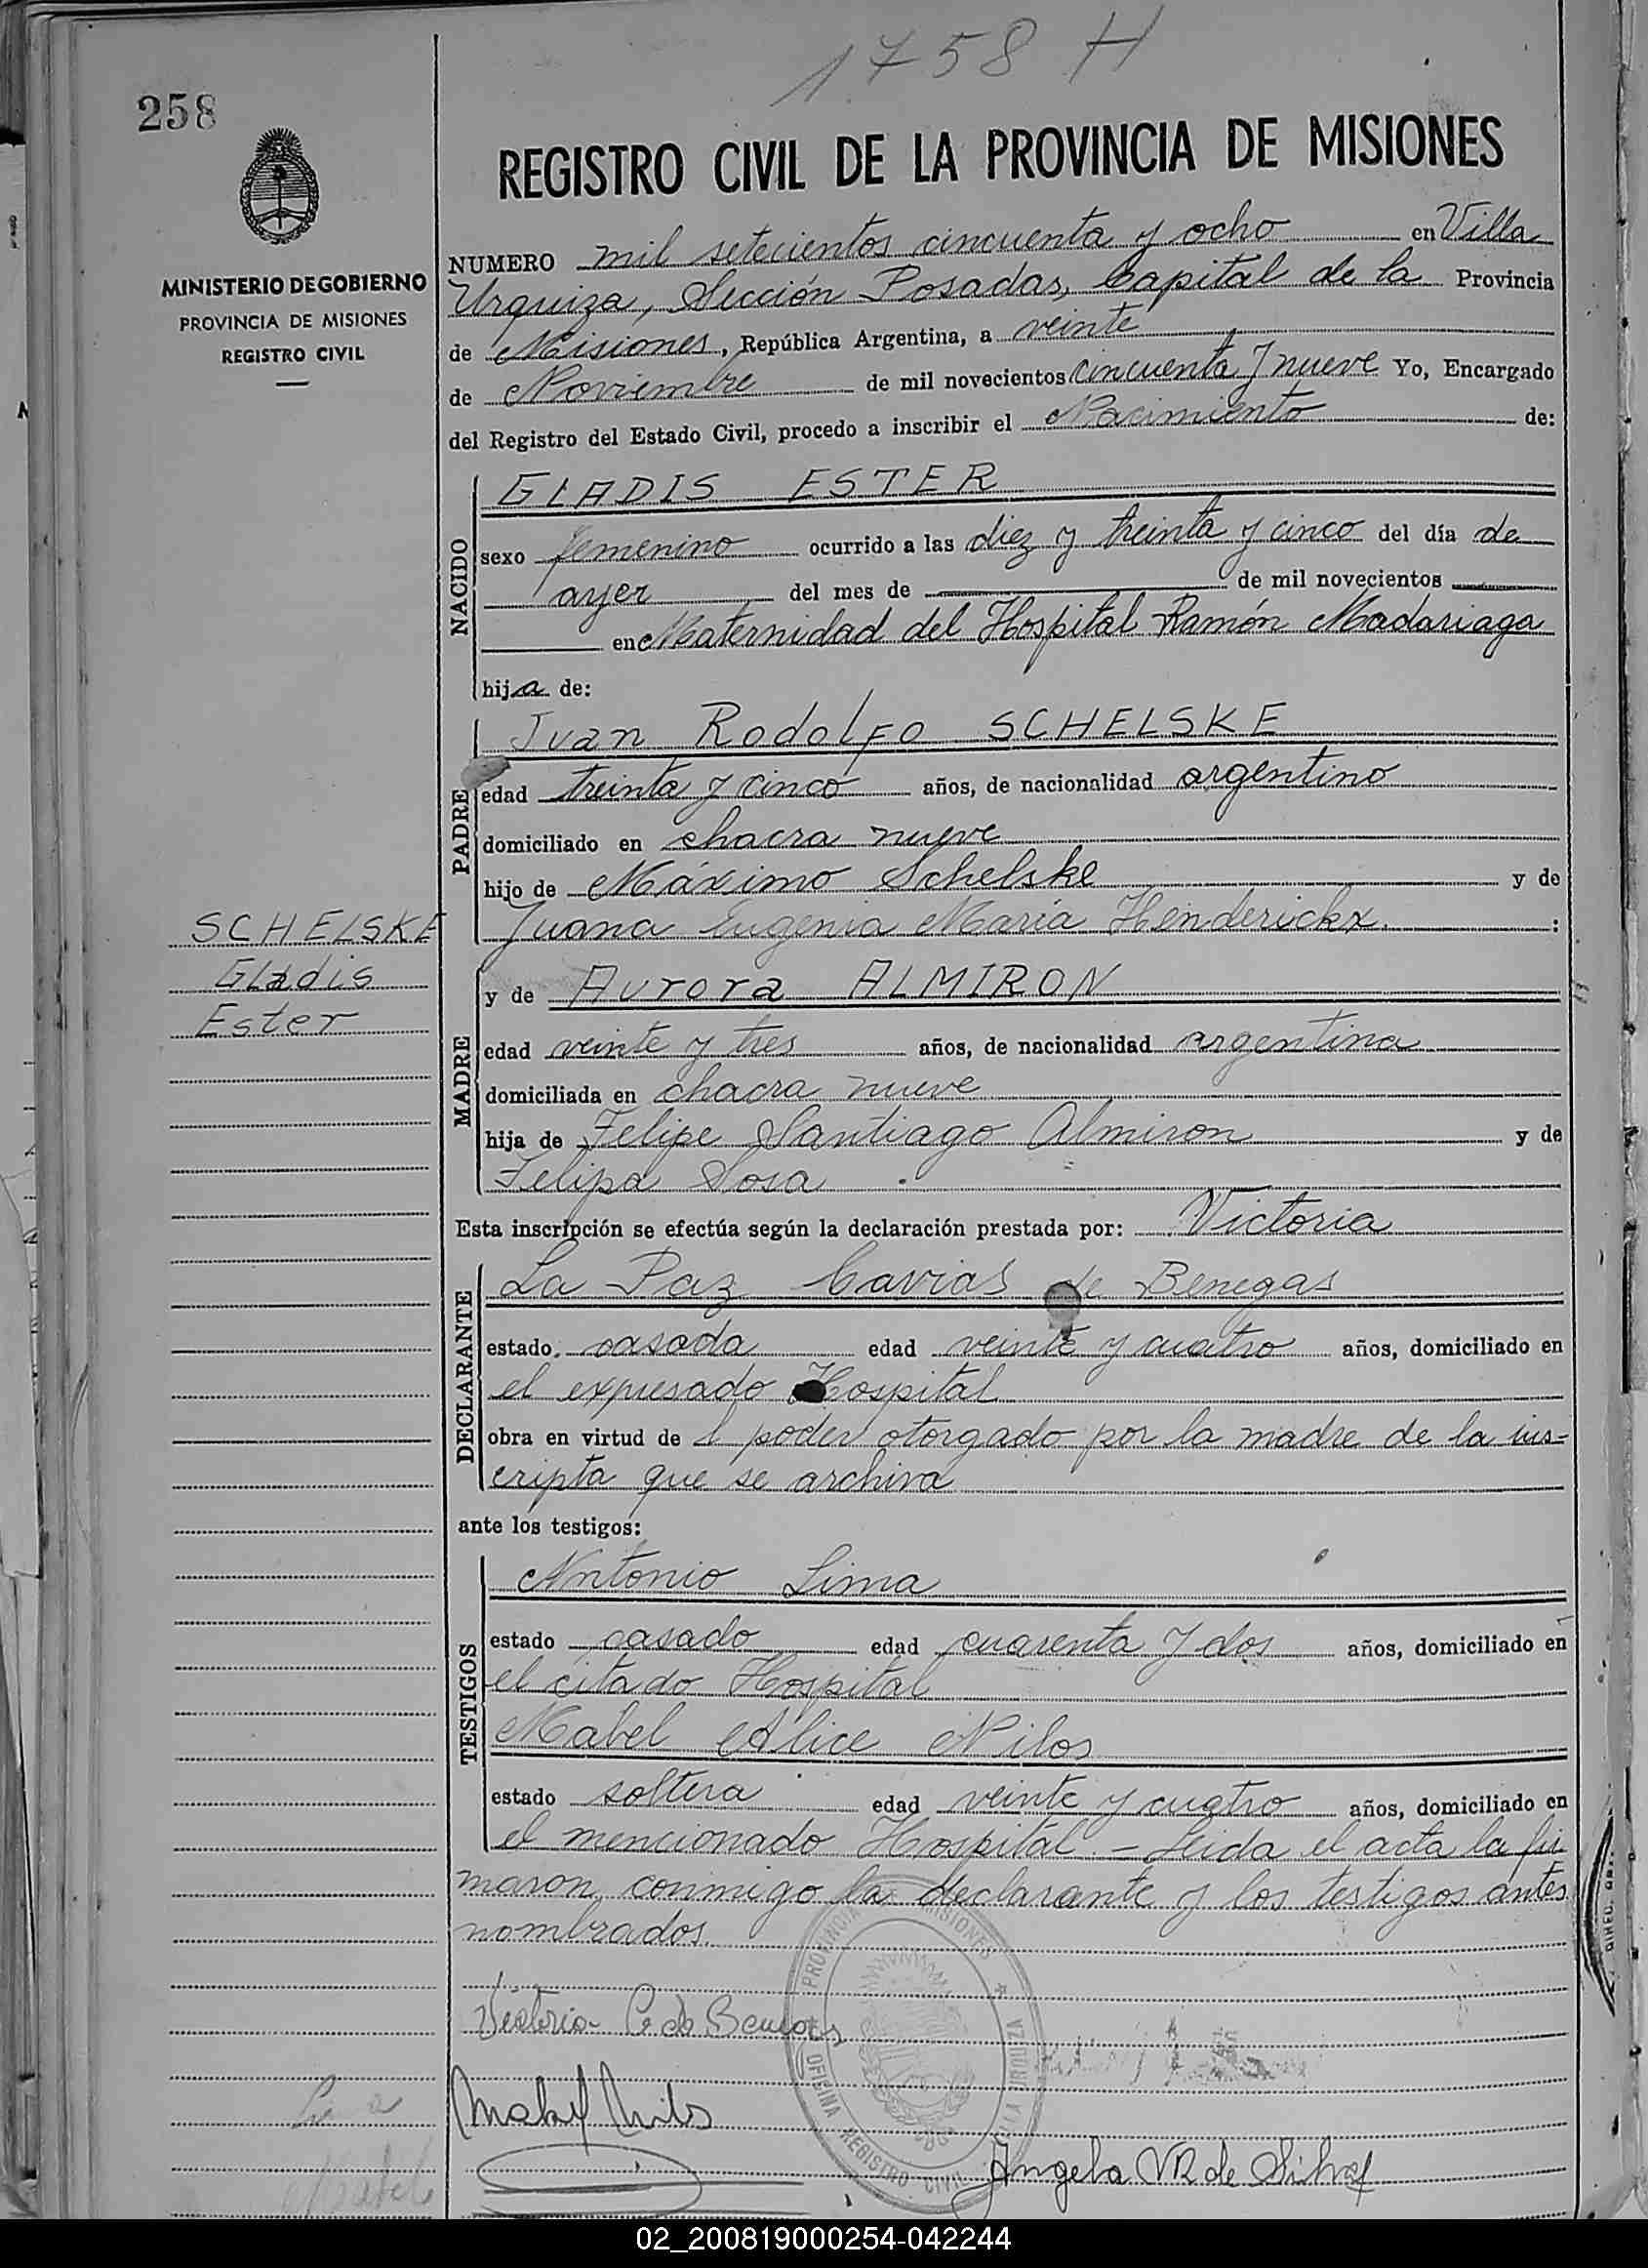 1758 H
258
REGISTRO CIVIL DE LA PROVINCIA DE MISIONES
MINISTERIO DE GOBIERNO
PROVINCIA DE MISIONES
REGISTRO CIVIL
NUMERO mil setecientos cincuenta y ocho en Villa
Urquiza, Sección Posadas, Capital de la Provincia
de Misiones, República Argentina, a veinte
de Noviembre de mil novecientos cincuenta y nueve Yo, Encargado
del Registro del Estado Civil, procedo a inscribir el Nacimiento de:
NACIDO
GLADIS ESTER
sexo femenino ocurrido a las diez y treinta y cinco del día de
ayer del mes de de mil novecientos
en Maternidad del Hospital Ramón Madariaga
hija de:
PADRE
Juan Rodolfo SCHELSKE
edad treinta y cinco años, de nacionalidad argentino
domiciliado en chacra nueve
hijo de Máximo Schelske y de
Juana Eugenia María Henderickx. :
SCHELSKE
Gladis
Ester
MADRE
y de Aurora ALMIRON
edad veinte y tres años, de nacionalidad argentina
domiciliada en chacra nueve
hija de Felipe Santiago Almiron y de
Felipa Sosa
Esta inscripción se efectúa según la declaración prestada por: Victoria
DECLARANTE
La Paz Cavias de Benegas
estado casada edad veinte y cuatro años, domiciliado en
el expresado Hospital
obra en virtud de l poder otorgado por la madre de la ins-
cripta que se archiva
ante los testigos:
TESTIGOS
Antonio Lima
estado casado edad cuarenta y dos años, domiciliado en
el citado Hospital
Mabel Alice Nilos
estado soltera edad veinte y cuatro años, domiciliado en
el mencionado Hospital. - Leida el acta la fir
maron, conmigo la declarante y los testigos antes
nombrados.
PROVINCIA MISIONES
OFICINA REGISTRO CIVIL VILLA URQUIZA
Victoria C. de Benegas
Mabel Nilos
Angela VR de Silva
02_200819000254-042244